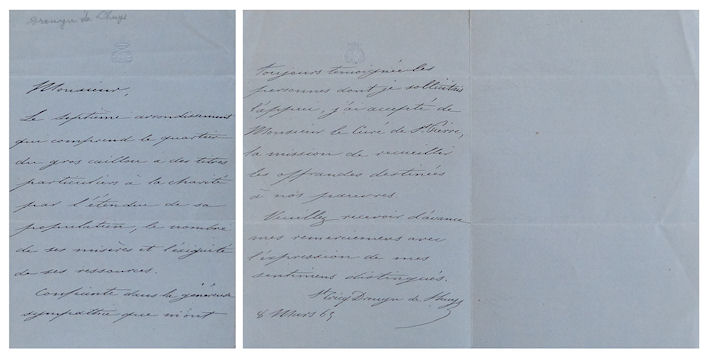 Drouyn de Lhuys
Monsieur,
Le septième arrondissement
qui comprend le quartier
du gros caillou a des titres
particuliers à la charité
par l'étendue de sa
population, le nombre
de ses misères et l'exiguité
de ses ressources.
Confiante dans la généreuse
sympathie que m'ont
toujours témoignée les
personnes dont je sollicitais
l'appui, j'ai accepté de
Monsieur le Curé de St. Pierre,
la mission de recueillir
les offrandes destinées
à nos pauvres
Veuillez recevoir d'avance
mes remerciemens avec
l'expression de mes
sentimens distingués.
Drouyn de Lhuys
8 Mars 65